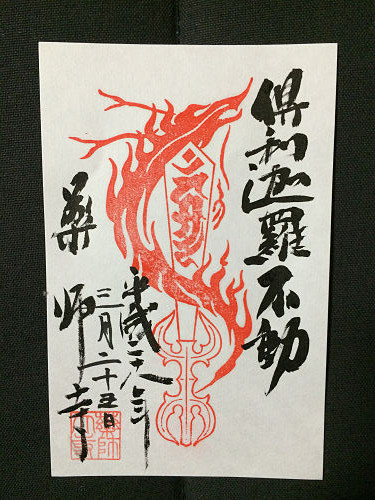 倶利迦羅不動
平成二十八年
三月二十五日
薬師寺